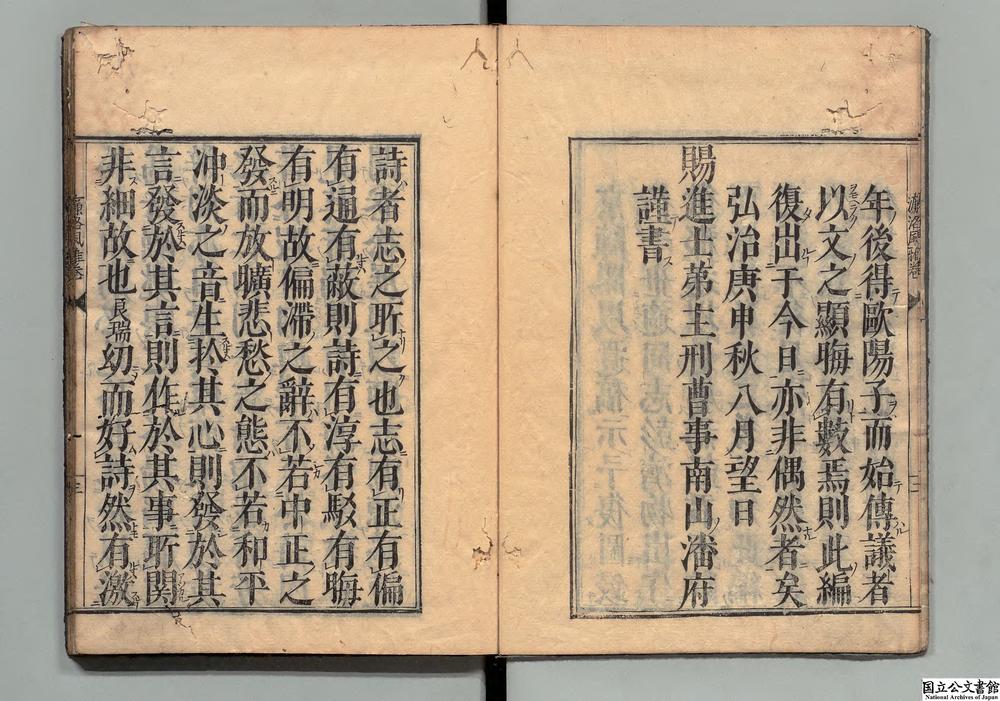 年後得歐陽子而始傳議者
以文之顯晦有數焉則此編
復出于今日亦非偶然者矣
弘治庚申秋八月望日
賜進士第主刑曹事南山潘府
謹書
詩者志之所之也志有正有偏
有通有蔽則詩有淳有駁有晦
有明故偏滯之辭不若中正之
發而放曠悲愁之態不若和平
冲淡之音生於其心則發於其
言發於其言則作於其事所関
非細故也良瑞幼而好詩然有激
国立公文書館
National Archives of Japan